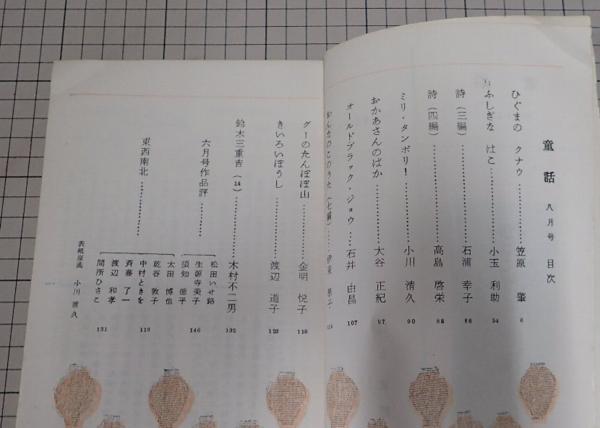 童話 八月号 目次
ひぐまの クナウ………笠原 肇 6
ふしぎな はこ………小玉 利助 54
詩(三編)………石浦 幸子 86
詩(四編)………高島 啓栄 88
ミリ・タンポリ!………小川 清久 90
おかあさんのばか………大谷 正紀 97
オールドブラック・ジョウ………石井 由昌 107
グーのたんぽぽ山………金明 悦子
きいろいぼうし………渡辺 道子 123
鈴木三重吉(14)………木村不二男 132
六月号作品評………
松田いせ路
生朝寺美子
須知 徳平
太田 博也 146
東西南北………
乾谷 敦子
中村ときを
斉藤 了一
渡辺 和孝
間所ひさこ
119
151
小川 清久